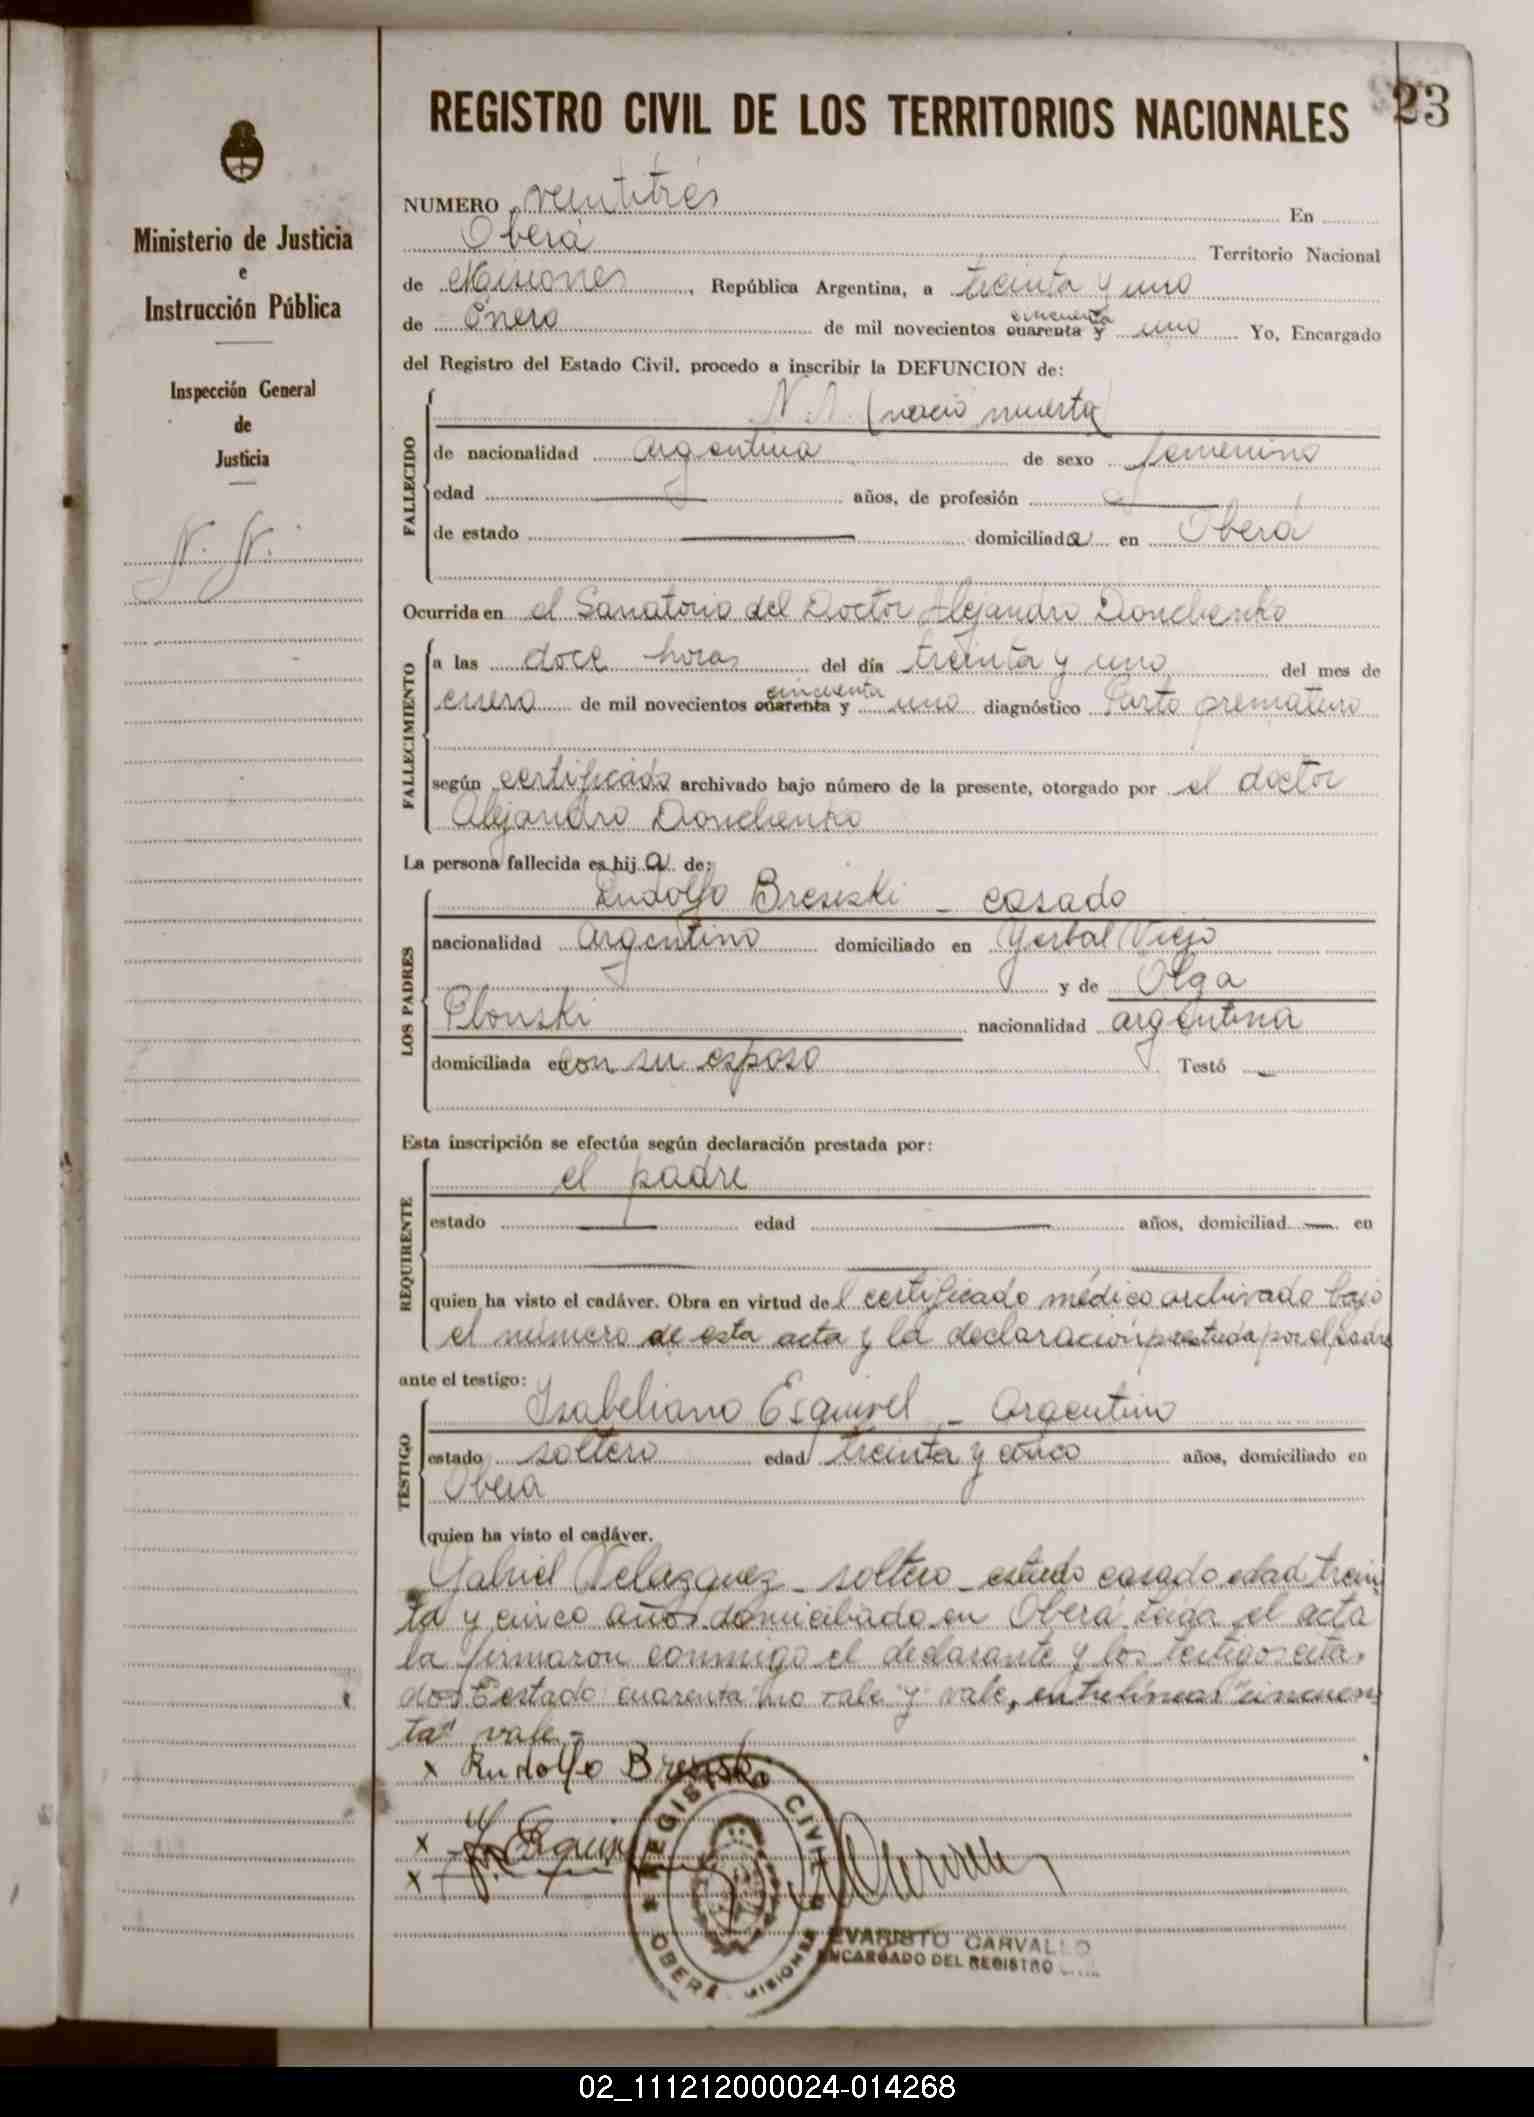 REGISTRO CIVIL DE LOS TERRITORIOS NACIONALES
23
Ministerio de Justicia
e
Instrucción Pública
Inspección General
de
Justicia
N. N.
NUMERO veintitrés En
Oberá Territorio Nacional
de Misiones, República Argentina, a treinta y uno
de Enero de mil novecientos cuarenta y cincuenta uno Yo, Encargado
del Registro del Estado Civil, procedo a inscribir la DEFUNCION de:
FALLECIDO
N. N. (nació muerta)
de nacionalidad argentina de sexo femenino
edad — años, de profesión —
de estado — domiciliada en Oberá
Ocurrida en el Sanatorio del Doctor Alejandro Donchenko
FALLECIMIENTO
a las doce horas del día treinta y uno del mes de
enero de mil novecientos cuarenta y cincuenta uno diagnóstico Parto prematuro
según certificado archivado bajo número de la presente, otorgado por el doctor
Alejandro Donchenko
La persona fallecida es hija de:
LOS PADRES
Rudolfo Bresiski - casado
nacionalidad Argentino domiciliado en Yerbal Viejo
y de Olga
Plonski nacionalidad argentina
domiciliada en con su esposo Testó —
Esta inscripción se efectúa según declaración prestada por:
REQUIRENTE
el padre
estado — edad — años, domiciliad — en
quien ha visto el cadáver. Obra en virtud del certificado médico archivado bajo
el número de esta acta y la declaración prestada por el padre
ante el testigo:
TESTIGO
Isabeliano Esquivel - Argentino
estado soltero edad treinta y cinco años, domiciliado en
Oberá
quien ha visto el cadáver.
Gabriel Velazquez - soltero - estado casado edad trein
ta y cinco años domiciliado en Oberá. Leída el acta
la firmaron conmigo el declarante y los testigos cita.
dos Testado: cuarenta "no vale "y" vale, entrelíneas "cincuen
ta" vale.-
x Rudolfo Bresiski
x Esquivel
x
REGISTRO CIVIL
OBERÁ MISIONES
EVARISTO CARVALLO
ENCARGADO DEL REGISTRO
02_111212000024-014268